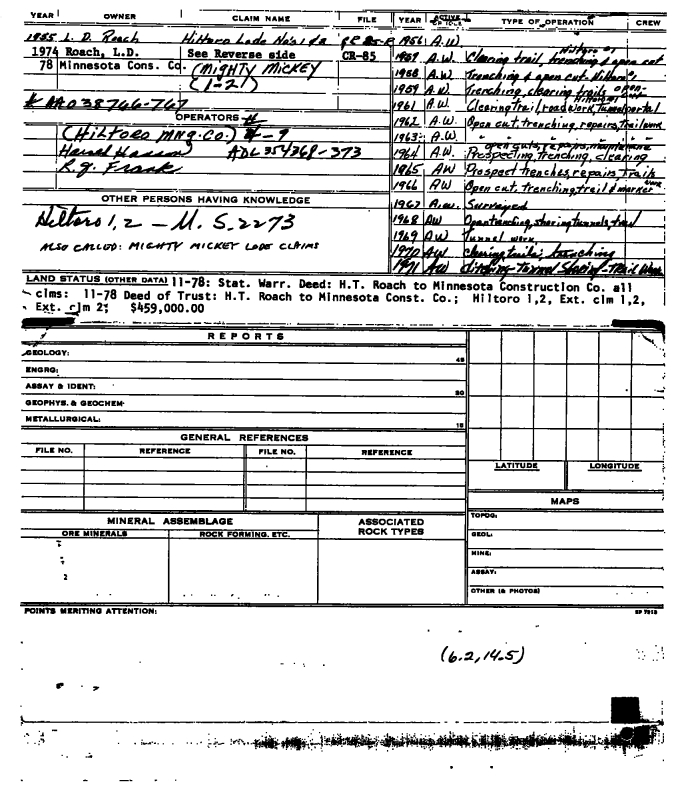 YEAR OWNER CLAIM NAME FILE YEAR ACTIVE OR IDLE TYPE OF OPERATION CREW
1955 L. D. Roach Hiltoro Lode No's 1 & 2 1956 A.W.
1974 Roach, L.D. See Reverse side CR-85 1957 A.W. Clearing trail, trenching & open cut
Hiltoro #1
78 Minnesota Cons. Co. (MIGHTY MICKEY 1958 A.W. Trenching & open cut Hiltoro
(1-21) 1959 A.W. Trenching, clearing trails open-cut
# AA038766-767 1961 A.W. Clearing Trail, road work, tunnel portal
Hiltoro #1
OPERATORS 1962 A.W. Open cut, trenching, repairs, trail work
(HILTORO MNG. CO.) #-9 1963 A.W. " " "
open cuts, repairs, maintenance
Harold Hassen ADL 354368-373 1964 A.W. Prospecting, trenching, clearing
R. G. Frank 1965 AW Prospect trenches, repairs, trails
1966 AW Open cut, trenching, trail & marker work
OTHER PERSONS HAVING KNOWLEDGE 1967 A.W. Surveyed
Hiltoro 1,2 - M.S. 2273 1968 AW Open trenching, shoring tunnels, trail
1969 AW Tunnel work,
ALSO CALLED: MIGHTY MICKEY LODE CLAIMS 1970 AW clearing trails; trenching
1971 AW ditching-Tunnel Shoring-Trail Work
LAND STATUS (OTHER DATA) 11-78: Stat. Warr. Deed: H.T. Roach to Minnesota Construction Co. all
clms: 11-78 Deed of Trust: H.T. Roach to Minnesota Const. Co.; Hiltoro 1,2, Ext. clm 1,2,
Ext. clm 2; $459,000.00
REPORTS
GEOLOGY:
45
ENGRG:
ASSAY & IDENT:
30
GEOPHYS. & GEOCHEM:
METALLURGICAL:
15
GENERAL REFERENCES
FILE NO. REFERENCE FILE NO. REFERENCE
LATITUDE LONGITUDE
MAPS
MINERAL ASSEMBLAGE ASSOCIATED ROCK TYPES TOPOG:
ORE MINERALS ROCK FORMING, ETC. GEOL:
MINE:
ASSAY:
2
OTHER (& PHOTOS)
POINTS MERITING ATTENTION:
(6.2, 14.5)